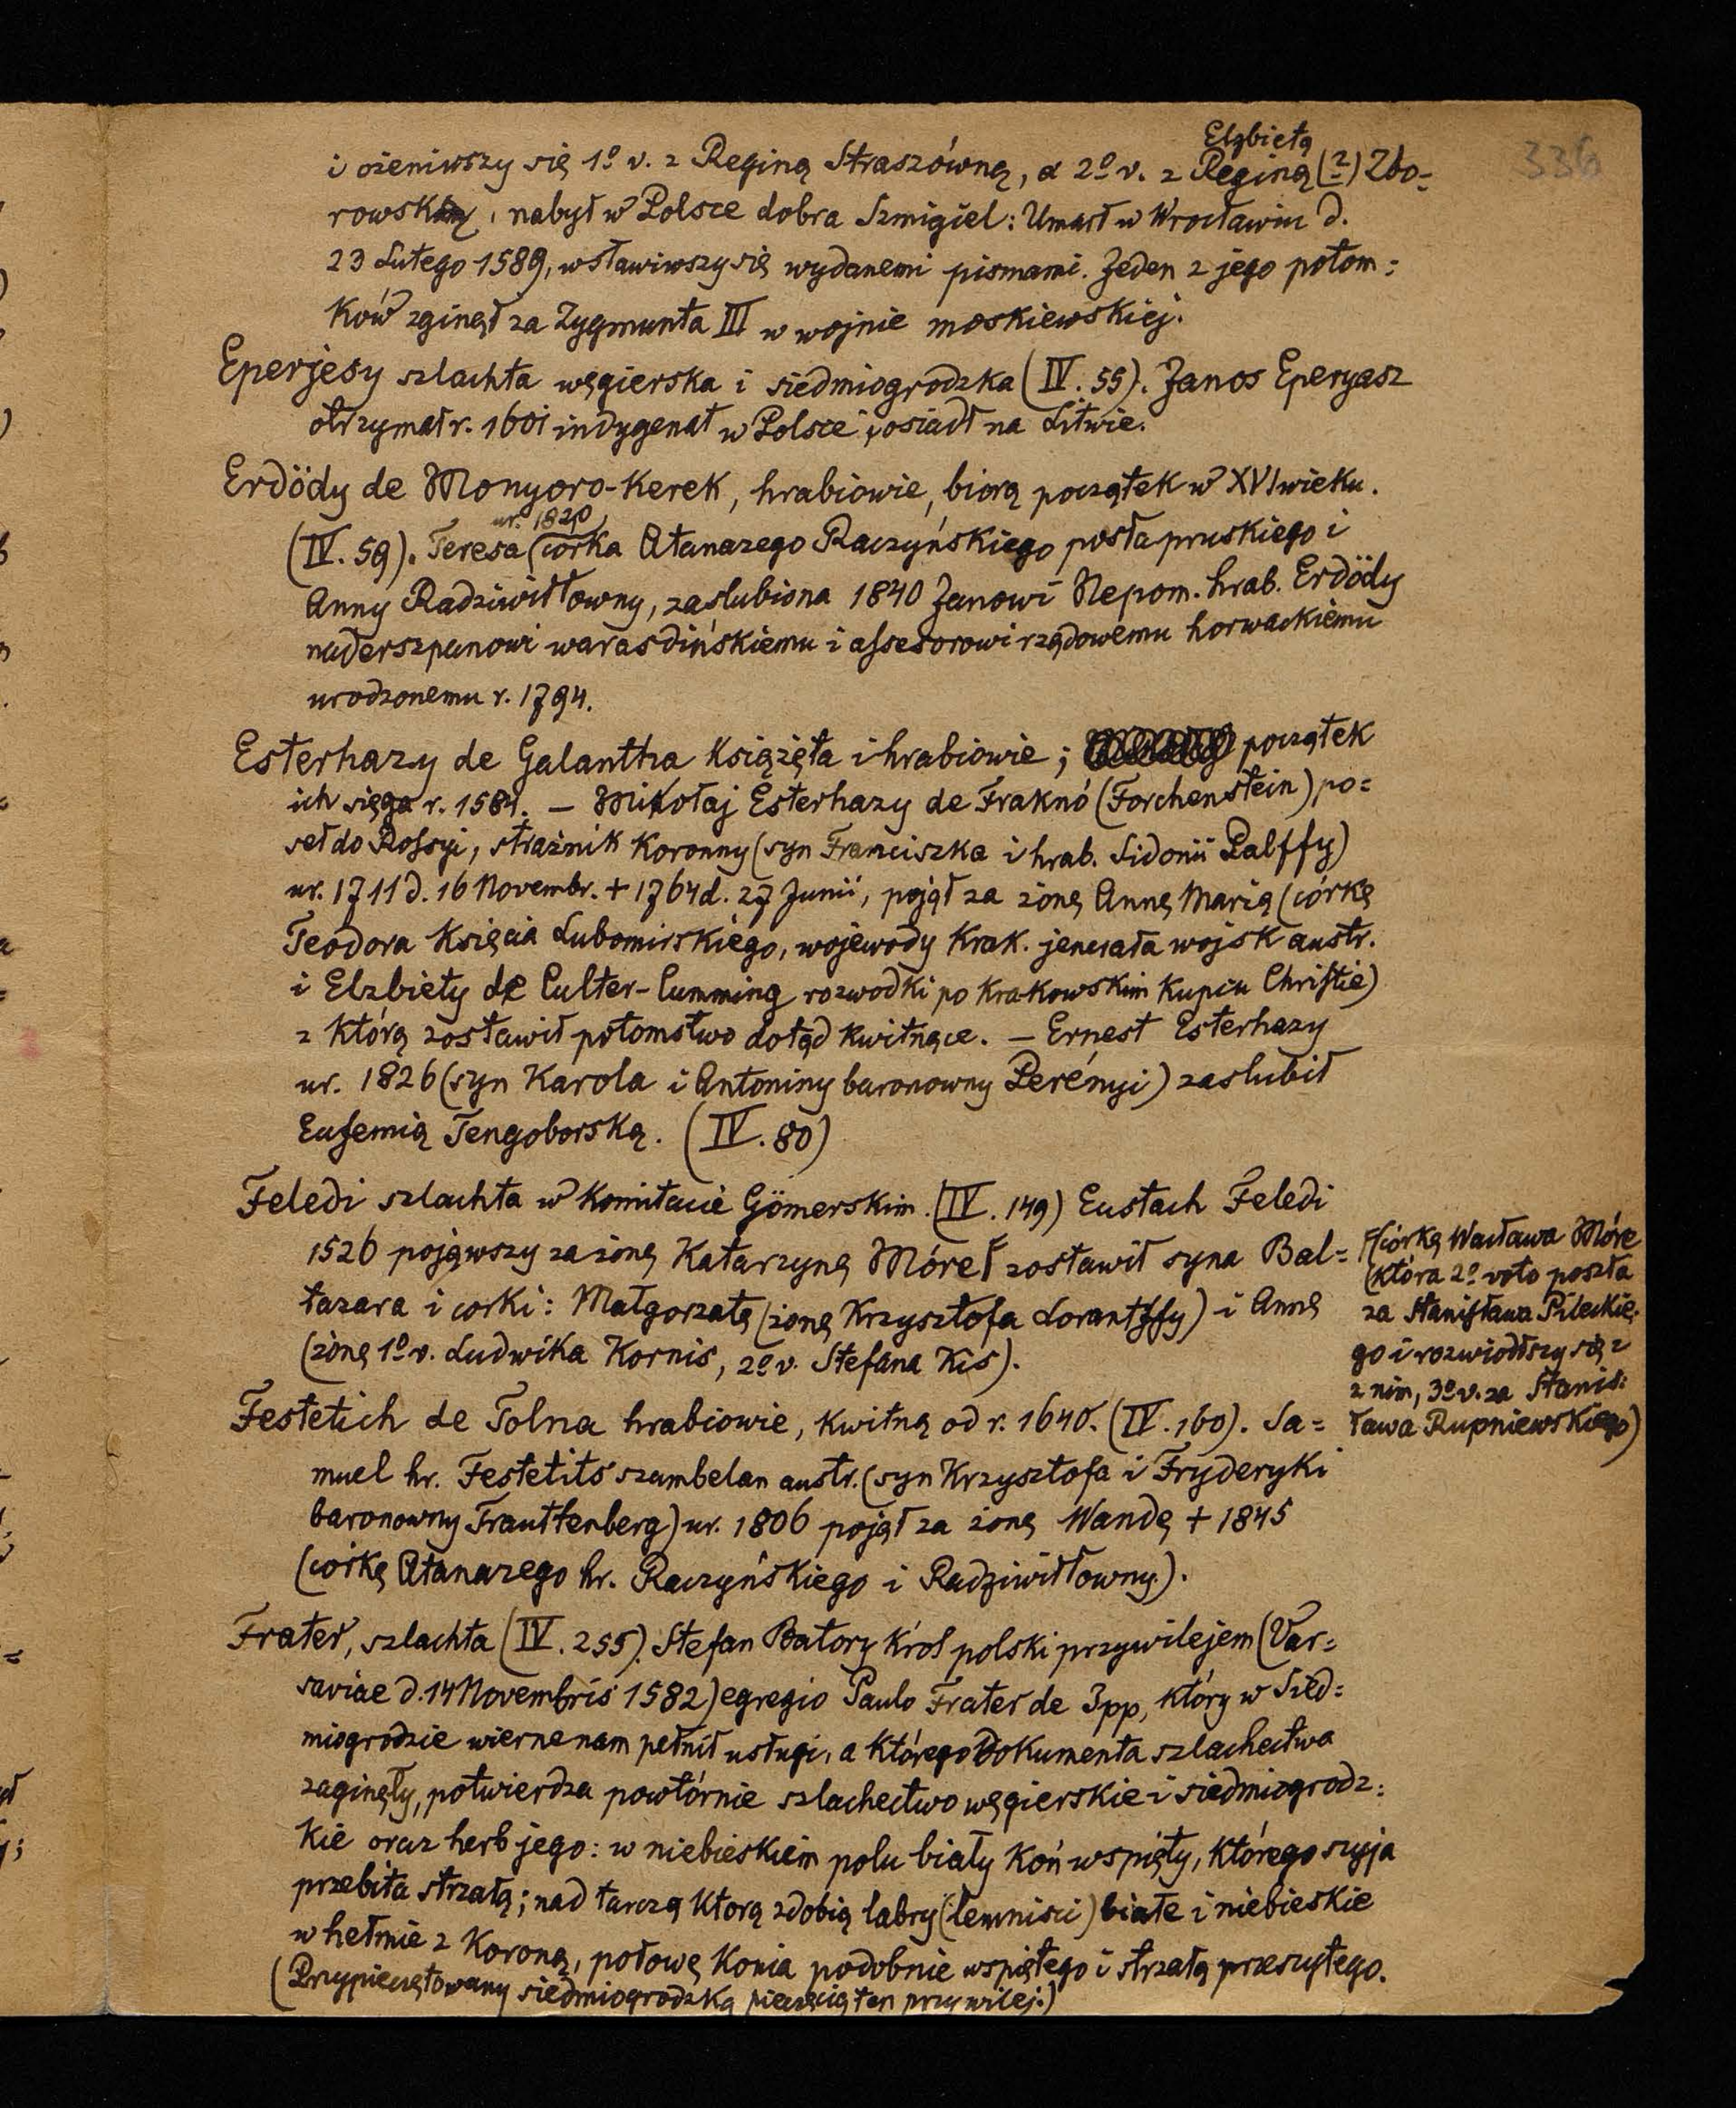 336
Elzbietą
i ożeniwszy się 1º v. z Reginą Straszówną, a 2º v. z Reginą (?) Zbo=
rowską, nabył w Polsce dobra Szmigiel: Umarł w Wrocławiu d.
23 Lutego 1589, wsławiwszy się wydanemi pismami. Jeden z jego potom=
ków zginął za Zygmunta III w wojnie moskiewskiej.
Eperjesy szlachta węgierska i siedmiogrodzka (IV. 55). Janos Eperyasz
otrzymał r. 1601 indygenat w Polsce i osiadł na Litwie.
Erdödy de Monyoro-Kerek, hrabiowie, biorą początek w XVI wieku.
ur. 1820
(IV. 59). Teresa (corka Atanazego Raczyńskiego posła pruskiego i
Anny Radziwiłłowny, zaslubiona 1840 Janowi Nepom. hrab. Erdödy
naderszpanowi warasdińskiemu i assesorowi rządowemu horwackiemu
urodzonemu r. 1794.
Esterhazy de Galantha Książęta i hrabiowie; początek
ich sięga r. 1584. — Mikołaj Esterhazy de Fraknó (Forchenstein) po=
seł do Rossyi, strażnik Koronny (syn Franciszka i hrab. Sidonii Palffy)
ur. 1711 d. 16 Novembr. + 1764 d. 27 Junii, pojął za żonę Annę Marią (córkę
Teodora Księcia Lubomirskiego, wojewody Krak. jenerała wojsk austr.
i Elzbiety de Culter-Cumming rozwodki po Krakowskim Kupcu Christie)
z którą zostawił potomstwo dotąd kwitnące. — Ernest Esterhazy
ur. 1826 (syn Karola i Antoniny baronowny Perényi) zaslubił
Eufemią Tengoborską. (IV. 80)
Feledi szlachta w Komitacie Gömerskim. (IV. 149) Eustach Feledi
1526 pojąwszy za żonę Katarzynę Móre zostawił syna Bal=
tazara i corki: Małgorzatę (żonę Krzysztofa Lorantffy) i Annę
(żonę 1º v. Ludwika Kornis, 2º v. Stefana Kis).
(córkę Wacława Móre
(która 2º voto poszła
za Stanisława Pileckie=
go i rozwiódłszy się z
z nim, 3º v. za Stanis=
ława Rupniewskiego)
Festetich de Tolna hrabiowie, kwitną od r. 1640. (IV. 160). Sa=
muel hr. Festetits szambelan austr. (syn Krzysztofa i Fryderyki
baronowny Trauttenberg) ur. 1806 pojął za żonę Wandę + 1845
(corkę Atanazego hr. Raczyńskiego i Radziwiłłowny).
Frater, szlachta (IV. 255). Stefan Batory król polski przywilejem (Var=
saviae d. 14 Novembris 1582) egregio Paulo Frater de Ipp, który w Sied=
miogrodzie wierne nam pełnił usługi, a którego Dokumenta szlachectwa
zaginęły, potwierdza powtórnie szlachectwo węgierskie i siedmiogrodz=
kie oraz herb jego: w niebieskiem polu biały koń wspięty, którego szyja
przebita strzałą; nad tarczą ktorą zdobią labry (lemnisci) białe i niebieskie
w hełmie z Koroną, połowę Konia podobnie wspiętego i strzałą przeszytego.
(Przypieczętowany siedmiogrodzką pieczęcią ten przywilej.)